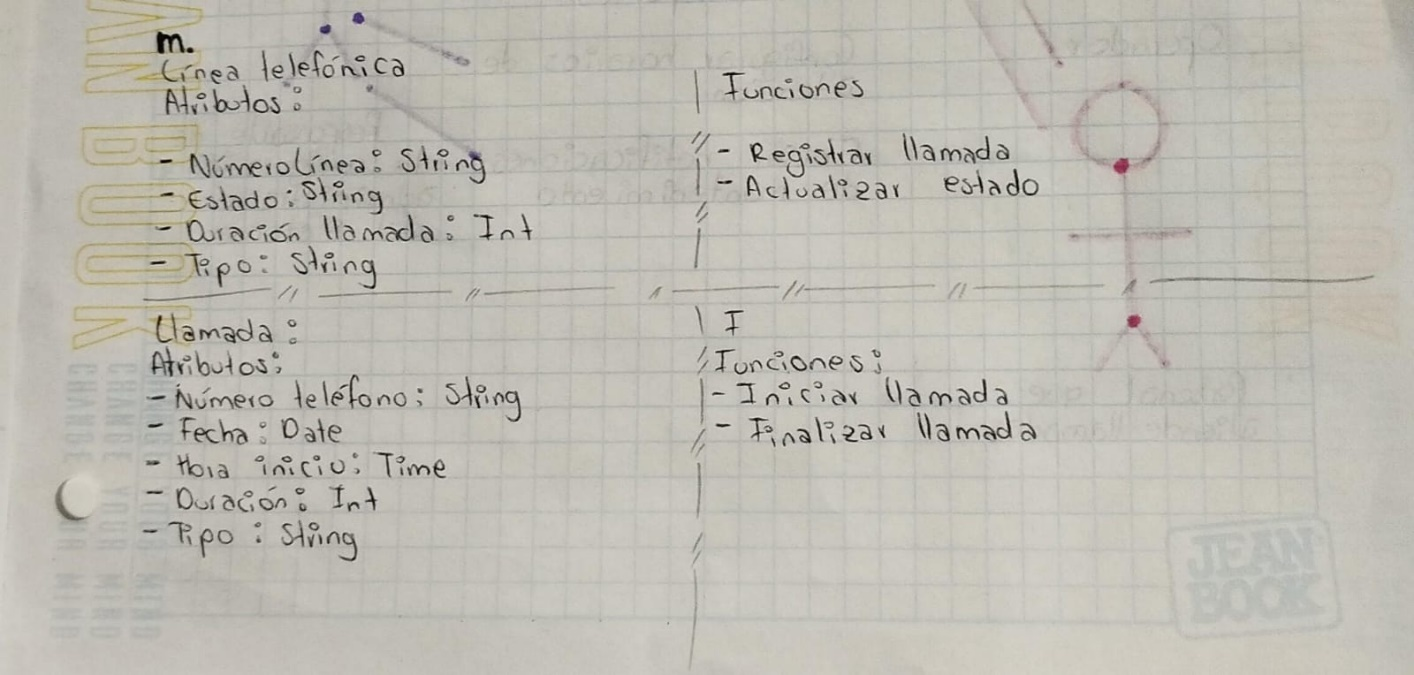 m.
Línea telefónica
Atributos:
- NúmeroLínea: String
- Estado: String
- Duración llamada: Int
- Tipo: String
Funciones
- Registrar llamada
- Actualizar estado
Llamada:
Atributos:
- Número teléfono: String
- Fecha: Date
- Hora inicio: Time
- Duración: Int
- Tipo: String
I
Funciones:
- Iniciar llamada
- Finalizar llamada
JEAN
BOOK